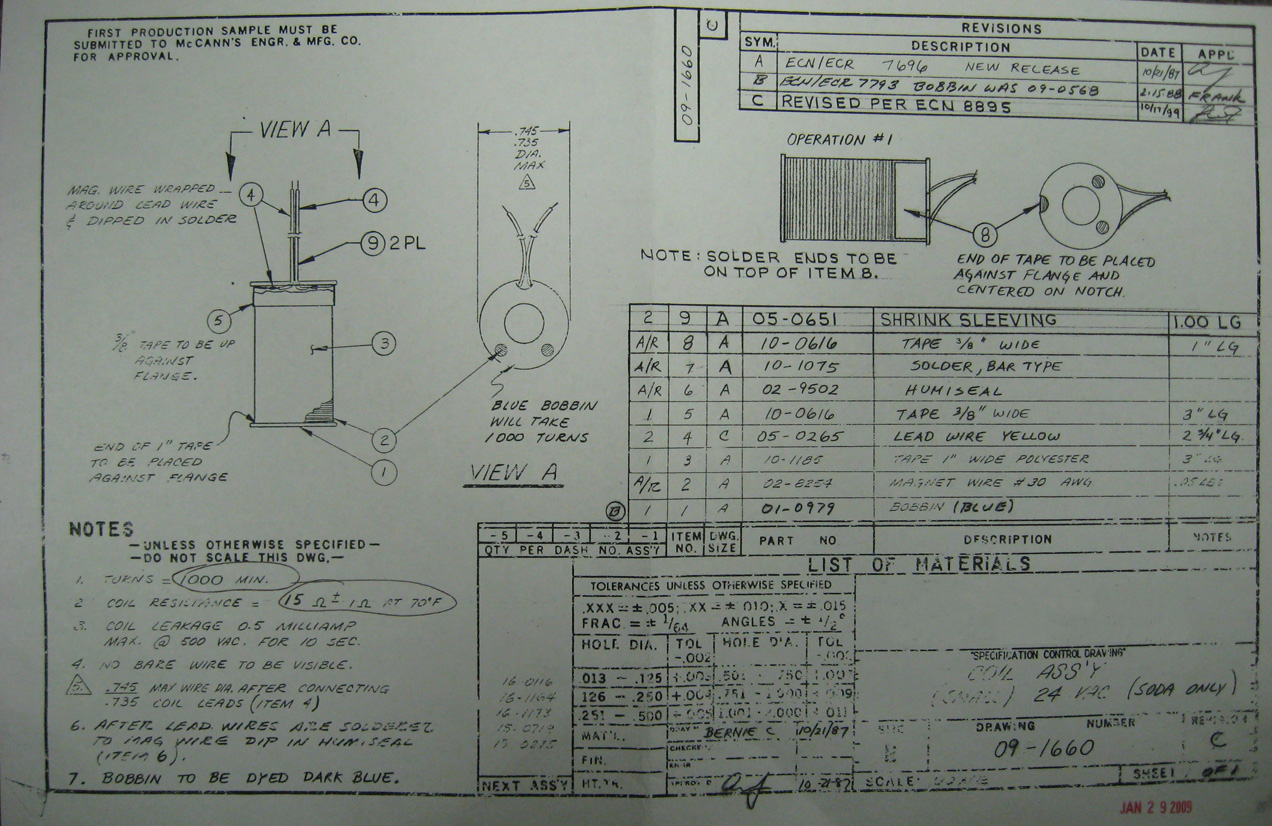 FIRST PRODUCTION SAMPLE MUST BE
SUBMITTED TO McCANN'S ENGR. & MFG. CO.
FOR APPROVAL.
09-1660
C
REVISIONS
SYM. DESCRIPTION DATE APPL
A ECN/ECR 7696 NEW RELEASE 10/21/87
B ECN/ECR 7793 BOBBIN WAS 09-0568 2.15.88 FRANK
C REVISED PER ECN 8895 10/17/99
VIEW A
MAG. WIRE WRAPPED
AROUND LEAD WIRE
& DIPPED IN SOLDER
4
4
9 2 PL
5
3/8 TAPE TO BE UP
AGAINST
FLANGE.
3
END OF 1" TAPE
TO BE PLACED
AGAINST FLANGE
2
1
.745
.735
DIA.
MAX
5
BLUE BOBBIN
WILL TAKE
1000 TURNS
VIEW A
OPERATION #1
8
NOTE: SOLDER ENDS TO BE
ON TOP OF ITEM 8.
END OF TAPE TO BE PLACED
AGAINST FLANGE AND
CENTERED ON NOTCH.
2 9 A 05-0651 SHRINK SLEEVING 1.00 LG
A/R 8 A 10-0616 TAPE 3/8" WIDE 1" LG
A/R 7 A 10-1075 SOLDER, BAR TYPE
A/R 6 A 02-9502 HUMISEAL
1 5 A 10-0616 TAPE 3/8" WIDE 3" LG
2 4 C 05-0265 LEAD WIRE YELLOW 2 3/4" LG.
1 3 A 10-1185 TAPE 1" WIDE POLYESTER 3" LG
A/R 2 A 02-8254 MAGNET WIRE #30 AWG .05 LBS
B 1 1 A 01-0979 BOBBIN (BLUE)
-5 -4 -3 -2 -1 ITEM NO. DWG. SIZE PART NO DESCRIPTION NOTES
QTY PER DASH NO. ASS'Y
LIST OF MATERIALS
NOTES
—UNLESS OTHERWISE SPECIFIED—
—DO NOT SCALE THIS DWG.—
1. TURNS = 1000 MIN.
2 COIL RESISTANCE = 15 Ω ± 1Ω AT 70°F
3. COIL LEAKAGE 0.5 MILLIAMP
MAX. @ 500 VAC. FOR 10 SEC.
4. NO BARE WIRE TO BE VISIBLE.
5. .745 MAX WIRE DIA. AFTER CONNECTING
.735 COIL LEADS (ITEM 4)
6. AFTER LEAD WIRES ARE SOLDERED
TO MAG WIRE DIP IN HUMISEAL
(ITEM 6).
7. BOBBIN TO BE DYED DARK BLUE.
16-0116
16-1164
16-1173
15-0719
NEXT ASS'Y
TOLERANCES UNLESS OTHERWISE SPECIFIED
.XXX = ± .005; .XX = ± .010; .X = ± .015
FRAC. = ± 1/64 ANGLES = ± 1/2°
HOLE DIA. TOL HOLE DIA. TOL
-.002
.013 — .125 +.003 .501 - .750
.126 — .250 +.004 .751 - 1.000 .009
.251 — .500 +.005 1.001 - 2.000 .011
MAT'L. BERNIE C. 10/21/87
FIN. CHECKED
HT.TR. 10-21-87
"SPECIFICATION CONTROL DRAWING"
COIL ASS'Y
(SMALL) 24 VAC (SODA ONLY)
SIZE DRAWING NUMBER REVISION
09-1660 C
SCALE: SHEET 1 OF 1
JAN 29 2009